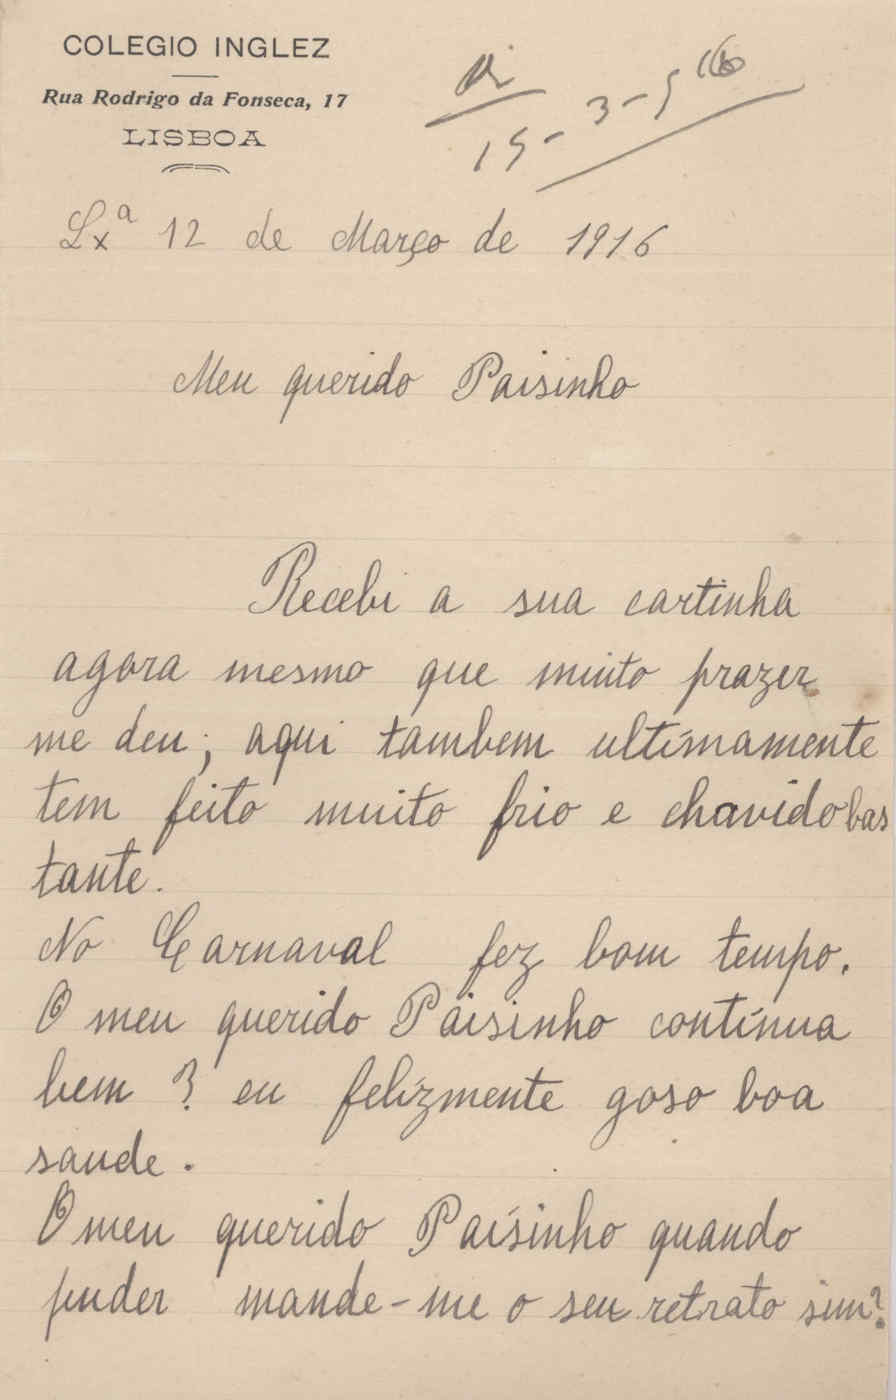 COLEGIO INGLEZ
Rua Rodrigo da Fonseca, 17
LISBOA
15-3-916
Lxª 12 de Março de 1916
Meu querido Paisinho
Recebi a sua cartinha
agora mesmo que muito prazer
me deu; aqui tambem ultimamente
tem feito muito frio e chovido bas
tante.
No Carnaval fez bom tempo.
O meu querido Paisinho continua
bem? eu felizmente goso boa
saude.
O meu querido Paisinho quando
puder mande-me o seu retrato sim?